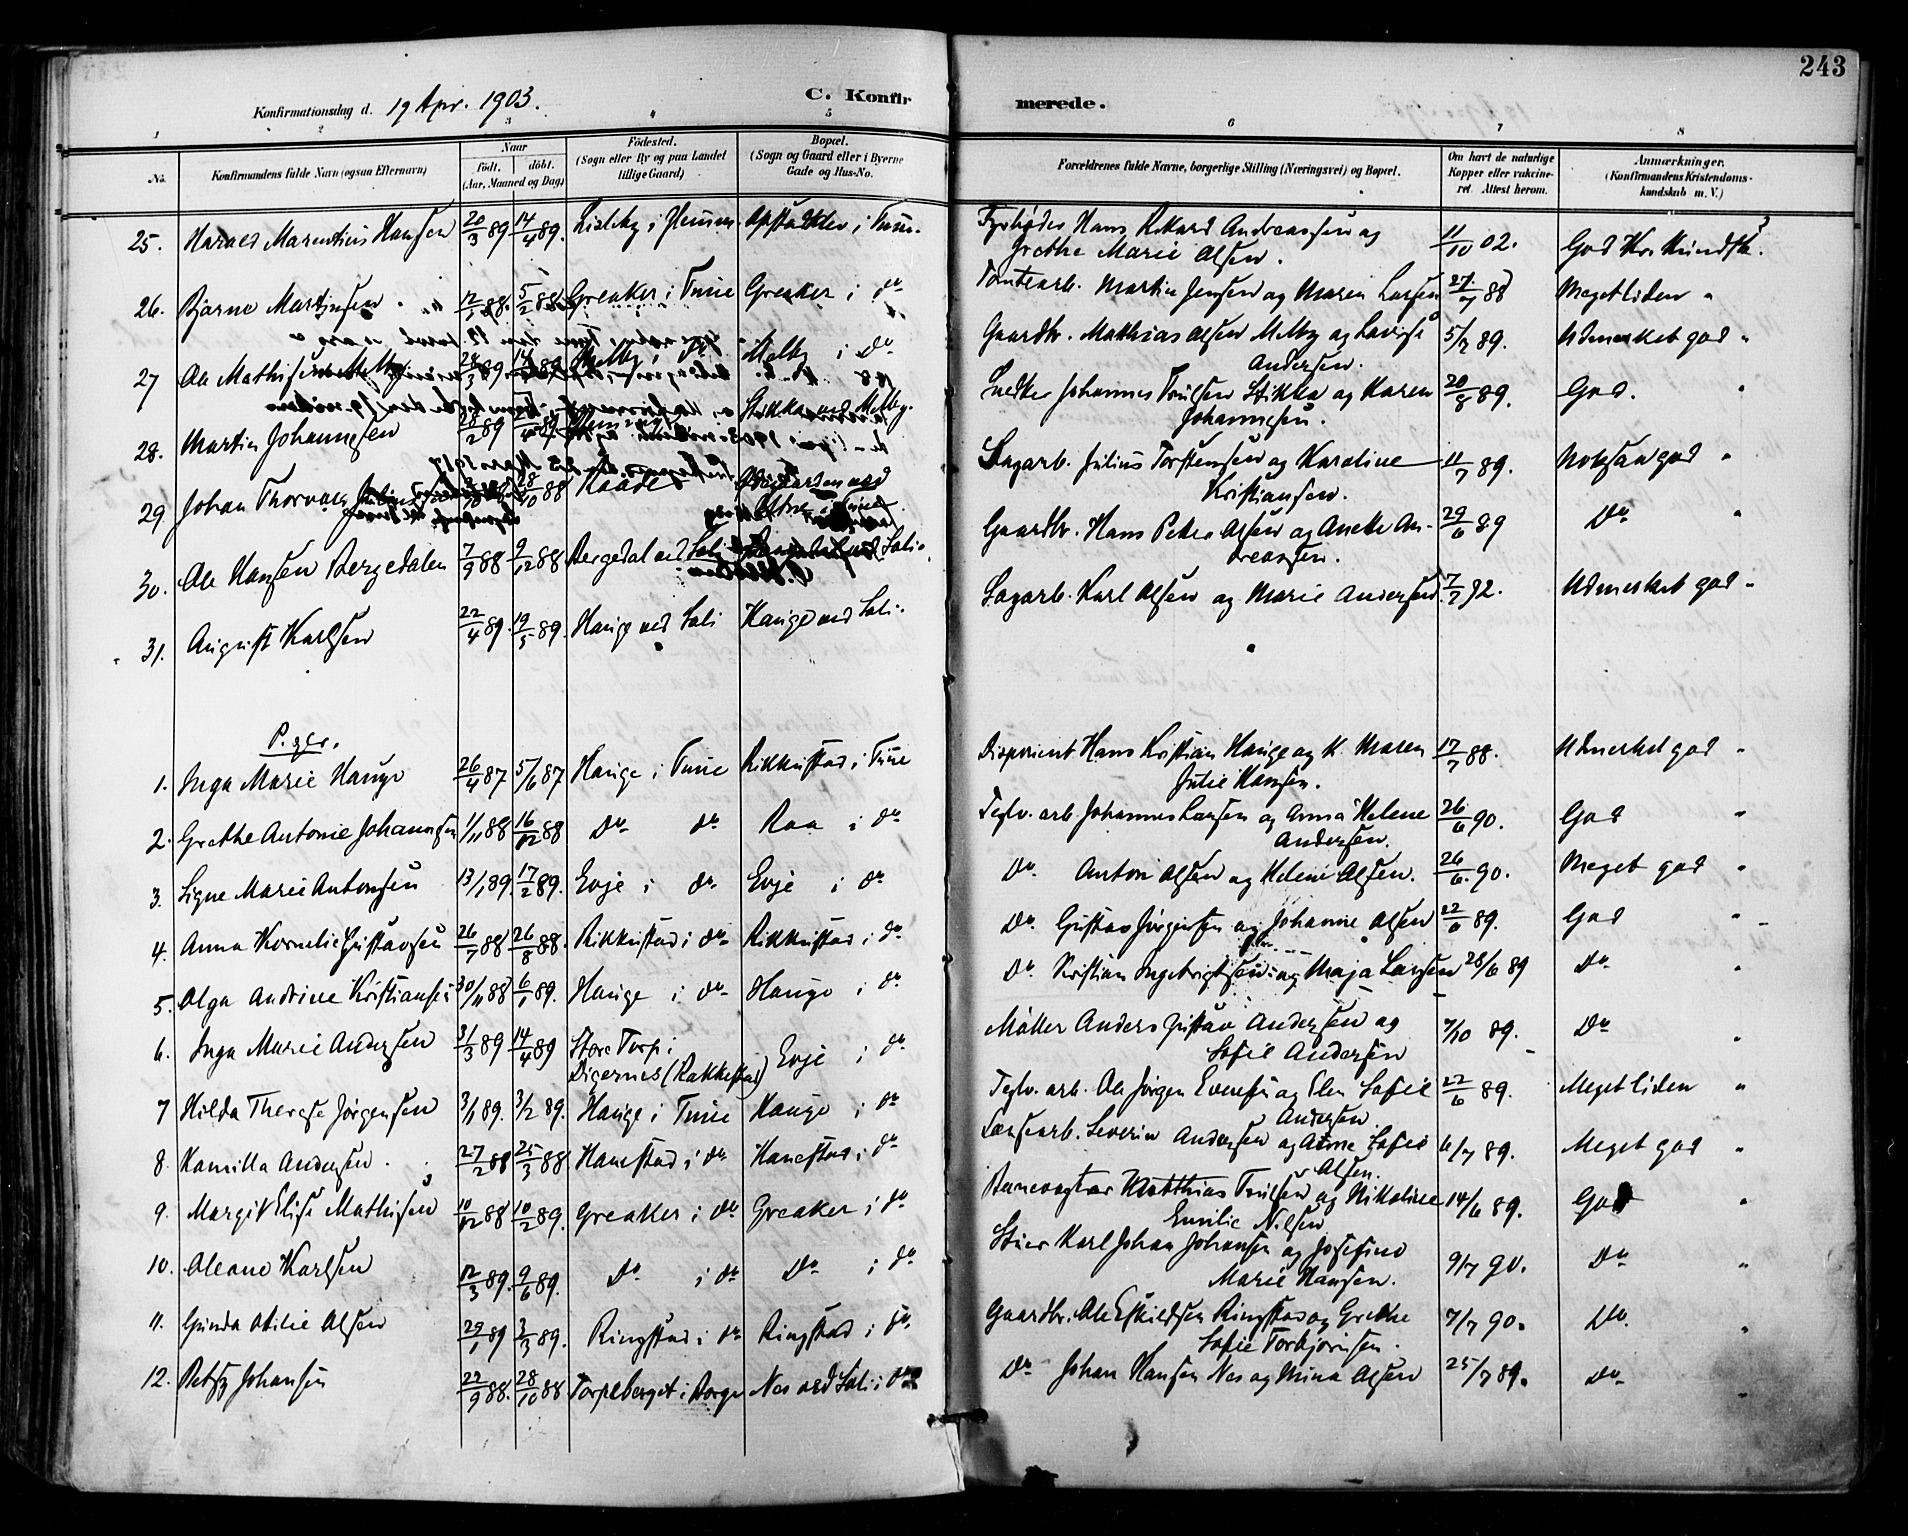 243
Konfirmationsdag d. 19 Apr. 1903.
C. Konfirmerede.
1 2 3 4 5 6 7 8
No.
Konfirmandens fulde Navn (ogsaa Efternavn)
Naar
født. døbt.
(Aar, Maaned og Dag)
Fødested.
(Sogn eller By og paa Landet
tillige Gaard)
Bopæl.
(Sogn og Gaard eller i Byerne
Gade og Hus-No.
Forældrenes fulde Navne, borgerlige Stilling (Næringsvei) og Bopæl.
Om havt de naturlige
Kopper eller vakcine-
ret. Attest herom.
Anmærkninger.
(Konfirmandens Kristendoms-
kundskab m. V.)
25. Harald Marentius Hansen 20/3 89 14/4 89. Lisleby i Glemm. i Tune. Fyrbøder Hans Rikard Andreassen og
Grethe Marie Olsen. 11/10 02. God Kr. Kundsk.
26. Bjarne Martinsen 12/1 88. 5/2 88 Greaker i Tune Greaker i do Tomtearb. Martin Jensen og Maren Larsen 27/7 88 Meget liden "
27 Ole Mathisen Melby 24/3 89 14/4 89 Melby i do Melby i do Gaardbr. Mathias Olsen Melby og Lovise
Andersen. 5/7 89. Udmerket god "
28. Martin Johannesen 28/2 89 Stikka ved Melby. Snedker Johannes Trulsen Stikka og Karen
Johannesen. 20/8 89. God. "
29. Johan Thorvald 28/10 88 Raade Sagarb. Julius Torstensen og Karoline
Kristiansen. 11/7 89. Noksaa god "
30. Ole Hansen Bergedalen 7/9 88 9/12 88 Bergedal ved Soli Soli. Gaardbr. Hans Peder Olsen og Anette An-
dreassen. 29/6 89 Do "
31. August Karlsen 22/4 89. 19/5 89. Hauge ved Soli Hauge ved Soli. Sagarb. Karl Olsen og Marie Andersen 7/7 92. Udmerket god "
Piger.
1. Inga Marie Hauge 26/4 87 5/6 87 Hauge i Tune Rikkustad i Tune Disponent Hans Kristian Hauge og H. Maren
Julie Hansen. 17/7 88. Udmerket god "
2. Grethe Antonie Johannesen 11/11 88 16/12 88 Do do Raa i do Teglv. arb. Johannes Larsen og Anna Helene
Andersen. 26/6 90. God "
3. Signe Marie Antonsen 13/1 89. 17/2 89. Evje i do Evje i do Do Anton Olsen og Helene Olsen. 26/6. 90. Meget god "
4. Anna Kornelie Gustavsen 26/7 88 26/8 88. Rikkustad i do Rikkustad i do Do Gustav Jørgensen og Johanne Olsen 22/6 89. God "
5. Olga Andrine Kristiansen 30/11 88 6/1 89. Hauge i do Hauge i do Do Kristian Ingebrigtsen og Maja Larsen 28/6 89 Do "
6. Inga Marie Andersen 31/3 89 14/4 89 Store Torp i
Digernes (Rakkestad) Evje i do Møller Anders Gustav Andersen og
Sofie Andersen 7/10 89. Do "
7 Hilda Therese Jørgensen 3/1 89. 3/2 89. Hauge i Tune Hauge i do Teglv. arb. Ole Jørgen Evensen og Elen Sofie
Andersen 22/6 89. Meget liden "
8. Kamilla Andersen. 27/2 88 25/3 88 Hanestad i do Hanestad i do Lænsearb. Severin Andersen og Anne Sofie
Olsen. 6/7 89. Meget god "
9. Margit Elise Mathisen 10/12 88 10/2 89. Greaker i do Greaker i do Banevogter Matthias Trulsen og Nikoline
Emilie Nilsen 14/6 89. God "
10. Oleane Karlsen 12/3 89. 9/6 89. Do i do Do i do Stuer Karl Johan Johansen og Josefine
Marie Hansen. 9/7 90. Do "
11. Gunda Otilie Olsen 29/1 89 3/3 89. Ringstad i do Ringstad i do Gaardbr. Ole Eskildsen Ringstad og Grethe
Sofie Torbjørnsen. 7/7 90. Do. "
12. Betsy Johansen 22/9 88. 28/10 88 Torpeberget i Borge Nes ved Soli i do Do Johan Hansen Nes og Mina Olsen 25/7 89. Do "